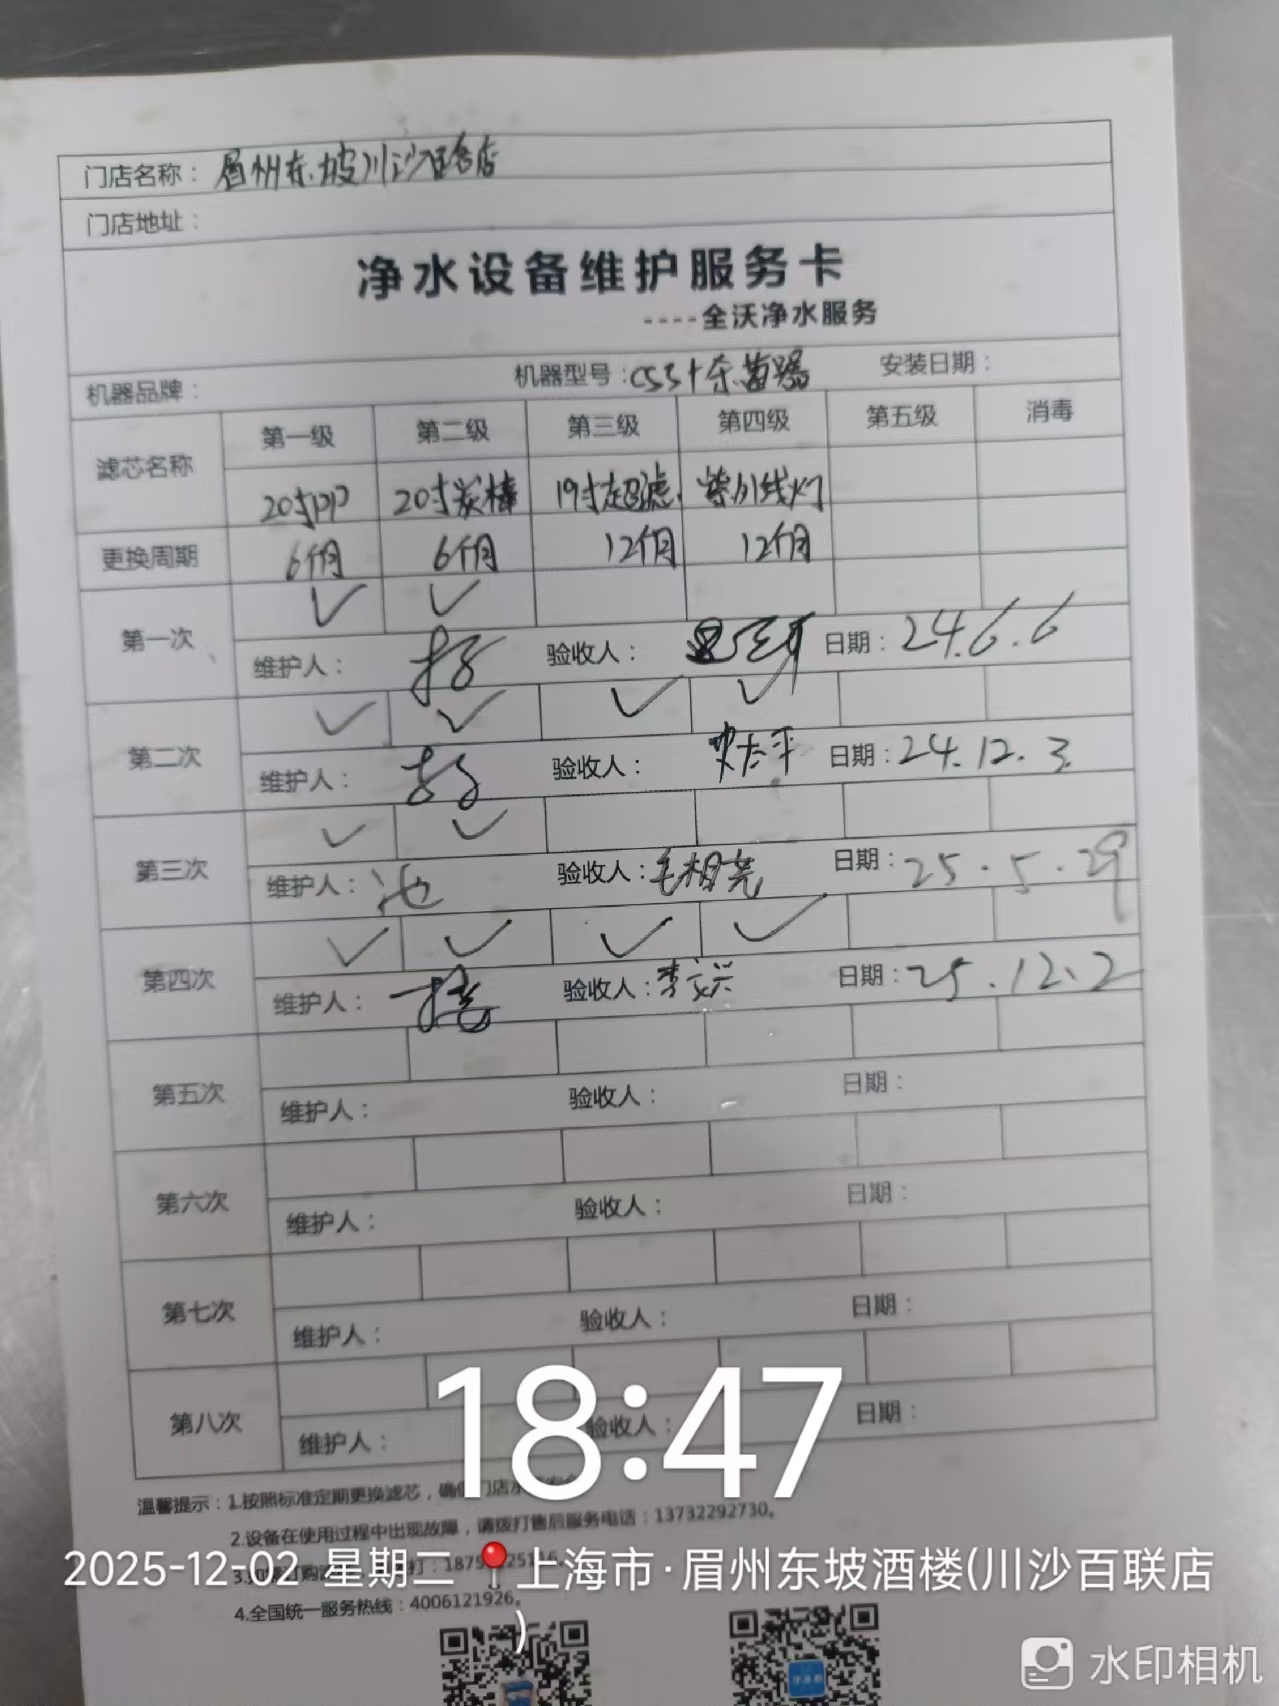 门店名称：眉州东坡川沙百合店
门店地址：
净水设备维护服务卡
----全沃净水服务
机器品牌： 机器型号： 安装日期：
滤芯名称 第一级 第二级 第三级 第四级 第五级 消毒
20寸PP 20寸炭棒 19寸超滤 紫外线灯
更换周期 6个月 6个月 12个月 12个月
第一次 ✓ ✓
维护人： 验收人： 日期：24.6.6
第二次 ✓ ✓ ✓ ✓
维护人： 验收人： 日期：24.12.3.
第三次 ✓ ✓
维护人：池 验收人：毛相亮 日期：25.5.29
第四次 ✓ ✓ ✓ ✓
维护人： 验收人：李文兴 日期：25.12.2
第五次
维护人： 验收人： 日期：
第六次
维护人： 验收人： 日期：
第七次
维护人： 验收人： 日期：
第八次
维护人： 验收人： 日期：
18:47
温馨提示：1.按照标准定期更换滤芯，确保门店水
2.设备在使用过程中出现故障，请拨打售后服务电话：13732292730。
2025-12-02 星期二 上海市·眉州东坡酒楼(川沙百联店)
4.全国统一服务热线：4006121926。
水印相机